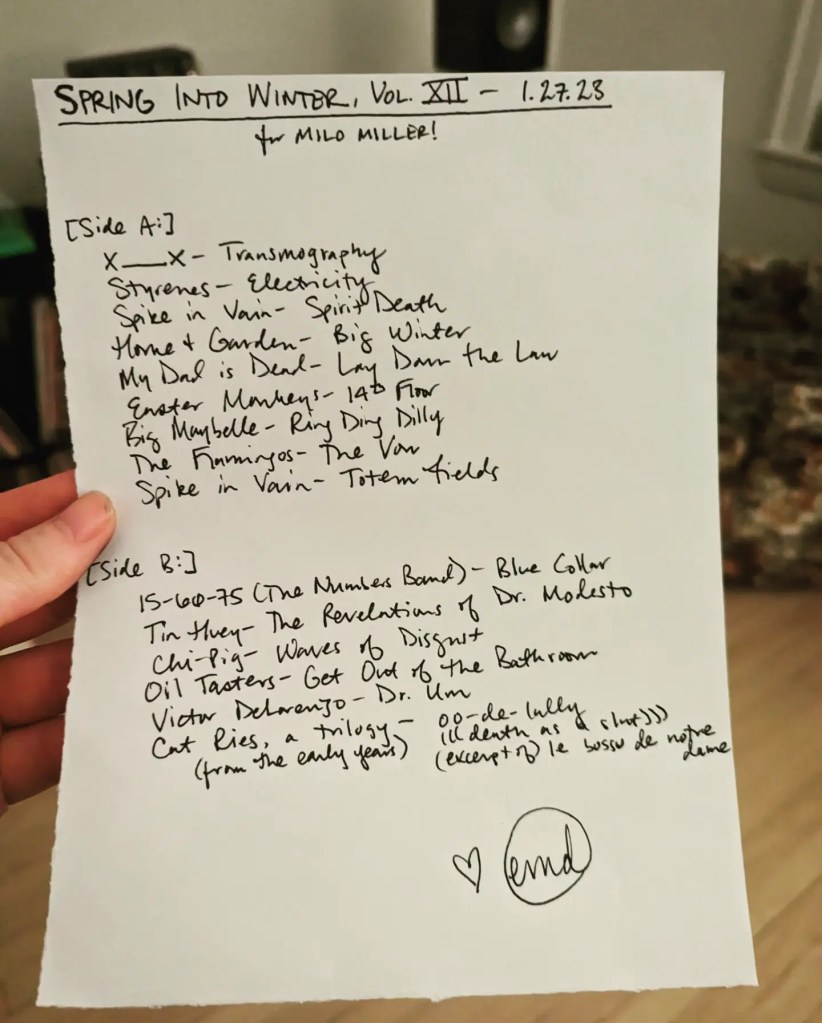 SPRING INTO WINTER, VOL. XII - 1.27.23
for MILO MILLER!
[Side A:]
X___X - Transmography
Styrenes - Electricity
Spike in Vain - Spirit Death
Home & Garden - Big Winter
My Dad is Dead - Lay Down the Law
Easter Monkeys - 14th Floor
Big Maybelle - Ring Ding Dilly
The Flamingos - The Vow
Spike in Vain - Totem fields
[Side B:]
15-60-75 (The Numbers Band) - Blue Collar
Tin Huey - The Revelations of Dr. Modesto
Chi-Pig - Waves of Disgust
Oil Tasters - Get Out of the Bathroom
Victor DeLorenzo - Dr. Um
Cat Ries, a trilogy - oo-de-lally
(from the early years) (((death as a slut)))
(excerpt of) le bossu de notre
dame
♡ emd